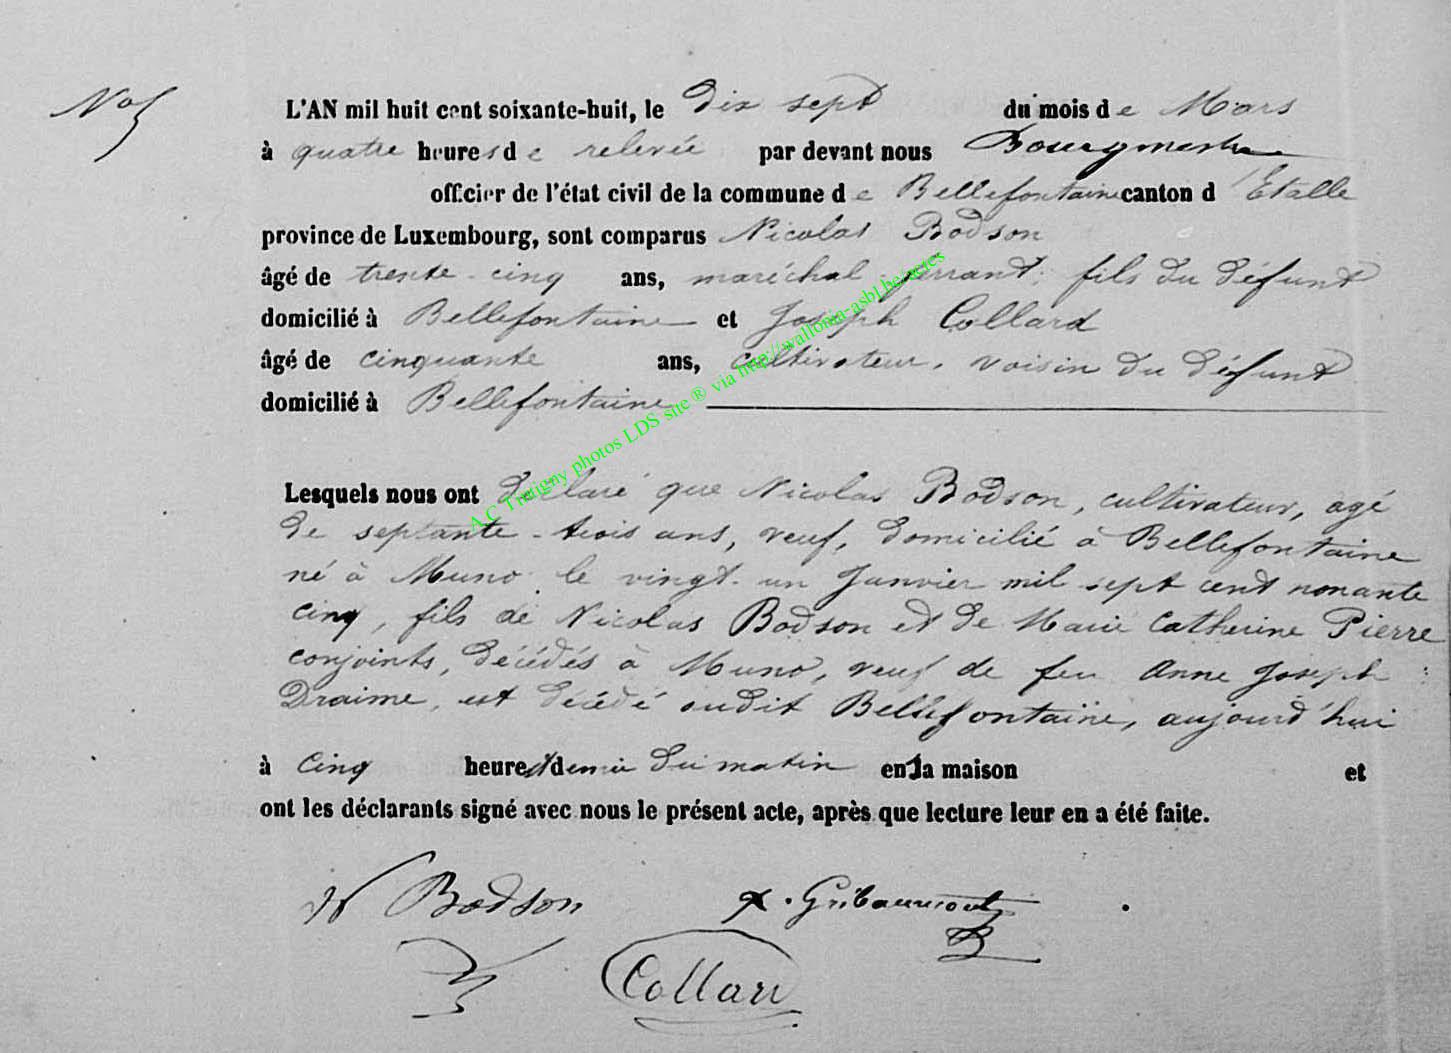 No 5
L'AN mil huit cent soixante-huit, le dix sept du mois de Mars
à quatre heures de relevée par devant nous Bourgmestre
officier de l'état civil de la commune de Bellefontaine canton d'Etalle
province de Luxembourg, sont comparus Nicolas Bodson
âgé de trente-cinq ans, maréchal ferrant fils du défunt
domicilié à Bellefontaine et Joseph Collard
âgé de cinquante ans, cultivateur, voisin du défunt
domicilié à Bellefontaine
Lesquels nous ont déclaré que Nicolas Bodson, cultivateur, agé
de septante-trois ans, veuf, domicilié à Bellefontaine
né à Muno le vingt-un Janvier mil sept cent nonante
cinq, fils de Nicolas Bodson et de Marie Catherine Pierre
conjoints, décédés à Muno, veuf de feu Anne Joseph
Draime, est décédé audit Bellefontaine, aujourd'hui
à cinq heures et demie du matin en la maison et
ont les déclarants signé avec nous le présent acte, après que lecture leur en a été faite.
N Bodson x. Gribaumont
Collard
A.C Tintigny photos LDS site ® via http://wallonia-asbl.be/actes